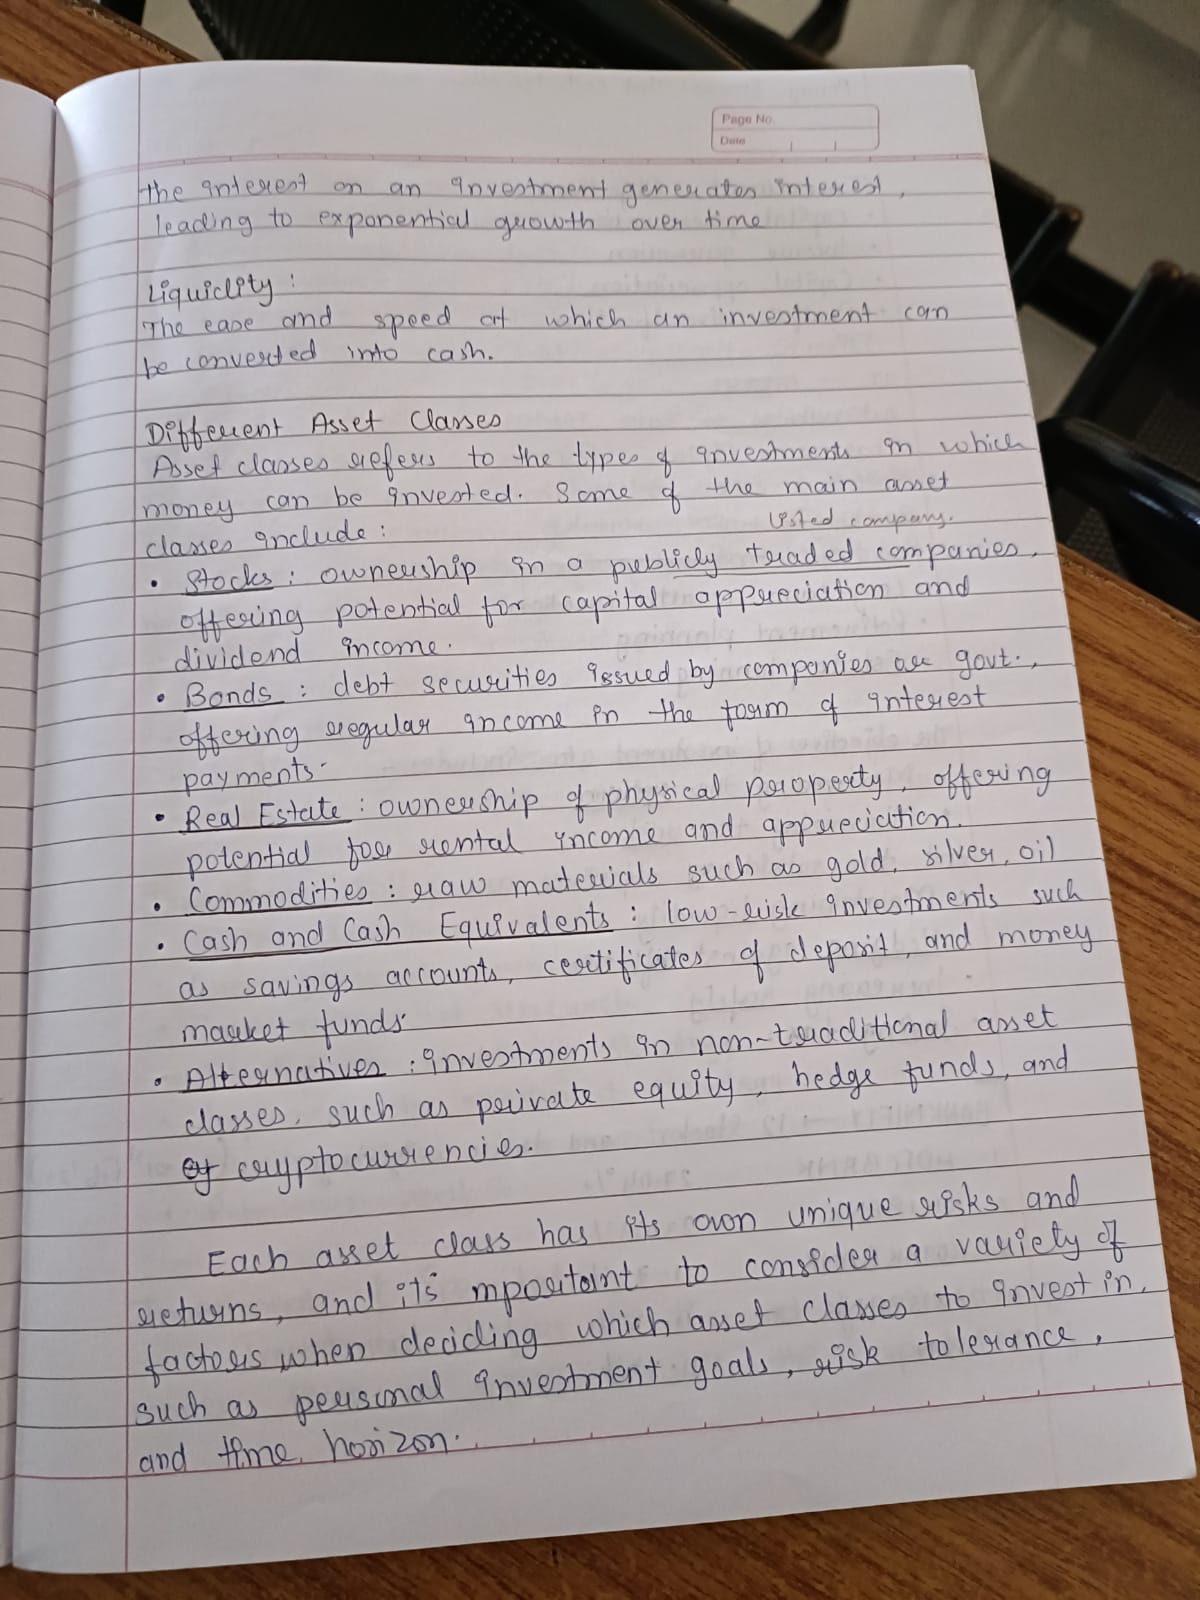 Page No.
Date
the interest on an investment generates interest,
leading to exponential growth over time
Liquidity :
The ease and speed at which an investment can
be converted into cash.
Different Asset Classes
Asset classes refers to the types of investments in which
money can be invested. Some of the main asset
listed company.
classes include :
• Stocks : ownership in a publicly traded companies,
offering potential for capital appreciation and
dividend income.
• Bonds : debt securities issued by companies are govt.,
offering regular income in the form of interest
payments.
• Real Estate : ownership of physical property, offering
potential for rental income and appreciation.
• Commodities : raw materials such as gold, silver, oil
• Cash and Cash Equivalents : low-risk investments such
as savings accounts, certificates of deposit, and money
market funds.
• Alternatives : investments in non-traditional asset
classes, such as private equity, hedge funds, and
cryptocurrencies.
Each asset class has its own unique risks and
returns, and it's mportant to consider a variety of
factors when deciding which asset classes to invest in,
such as personal investment goals, risk tolerance,
and time horizon.